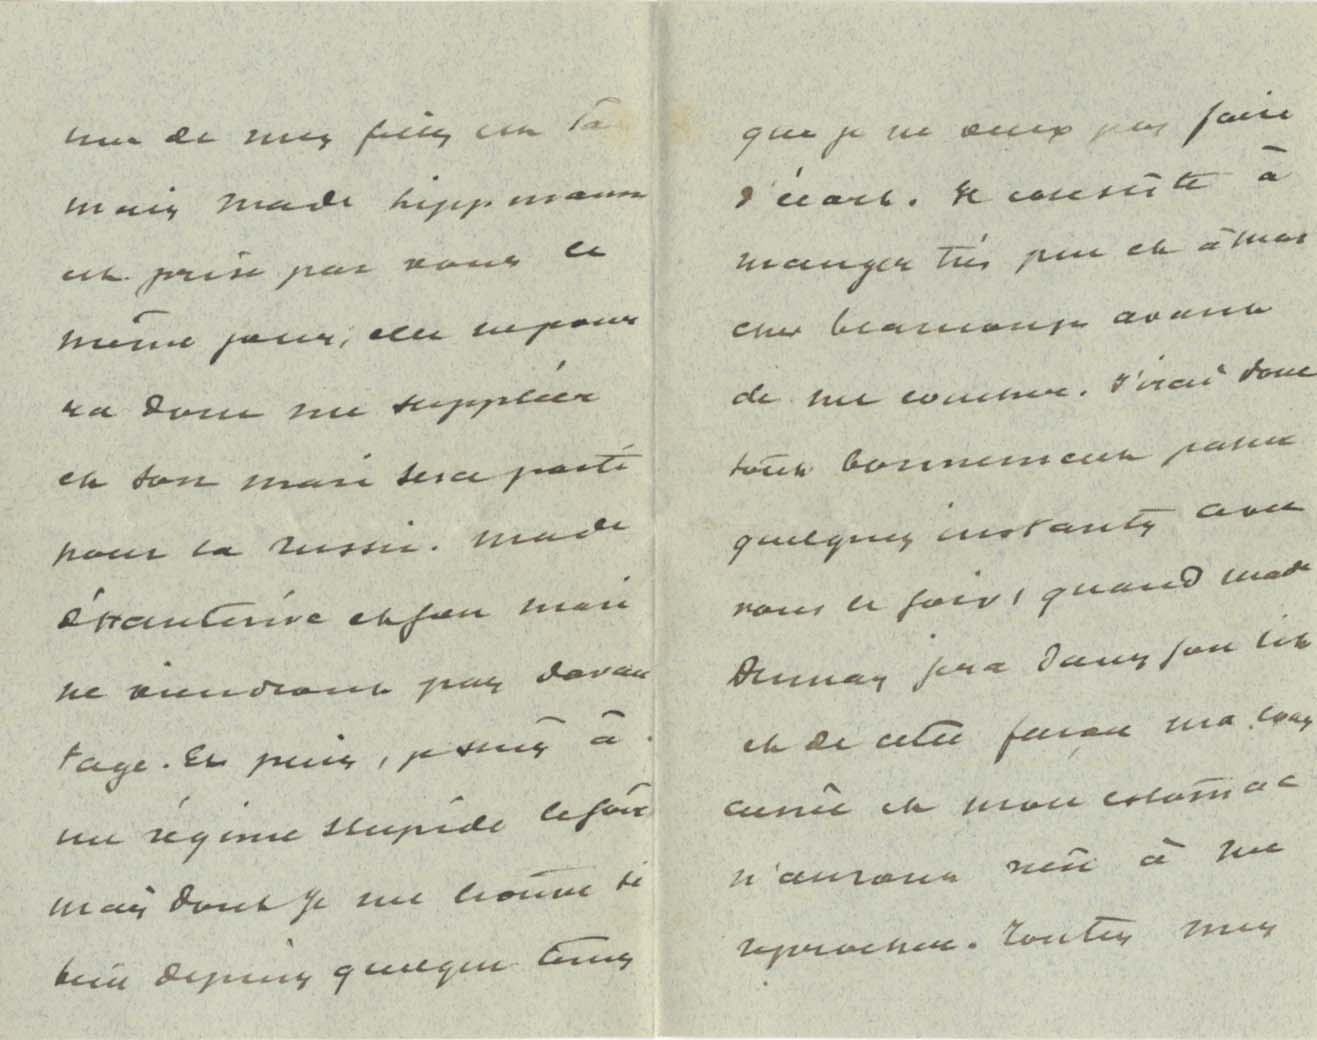 une de mes filles est là
mais Made Lippmann
est prise par vous le
même jour, elle ne pour
ra donc me suppléer
et son mari sera parti
pour la Russie. Made
et son mari
ne viendront pas davan
tage. Et puis, je suis à
un régime stupide le soir
mais dont je me trouve si
bien depuis quelque tems
que je ne veux pas faire
d'écart. Il consiste à
manger très peu et à mar
cher beaucoup avant
de me coucher. J'irai donc
tout bonnement passer
quelques instants avec
vous le soir, quand Made
Dunnay sera dans son lit
et de cette façon ma cons
cience et mon estomac
n'auront rien à me
reprocher. Toutes mes